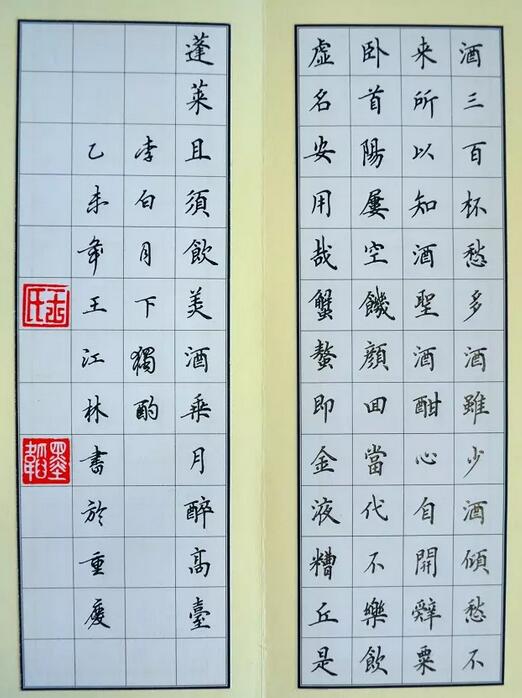 酒三百杯愁多酒雖少酒傾愁不
来所以知酒聖酒酣心自開辭粟
卧首陽屢空饑顏回當代不樂飲
虛名安用哉蟹螯即金液糟丘是
蓬莱且須飲美酒乘月醉高臺
李白月下獨酌
乙未年王江林書於重慶
王氏
墨